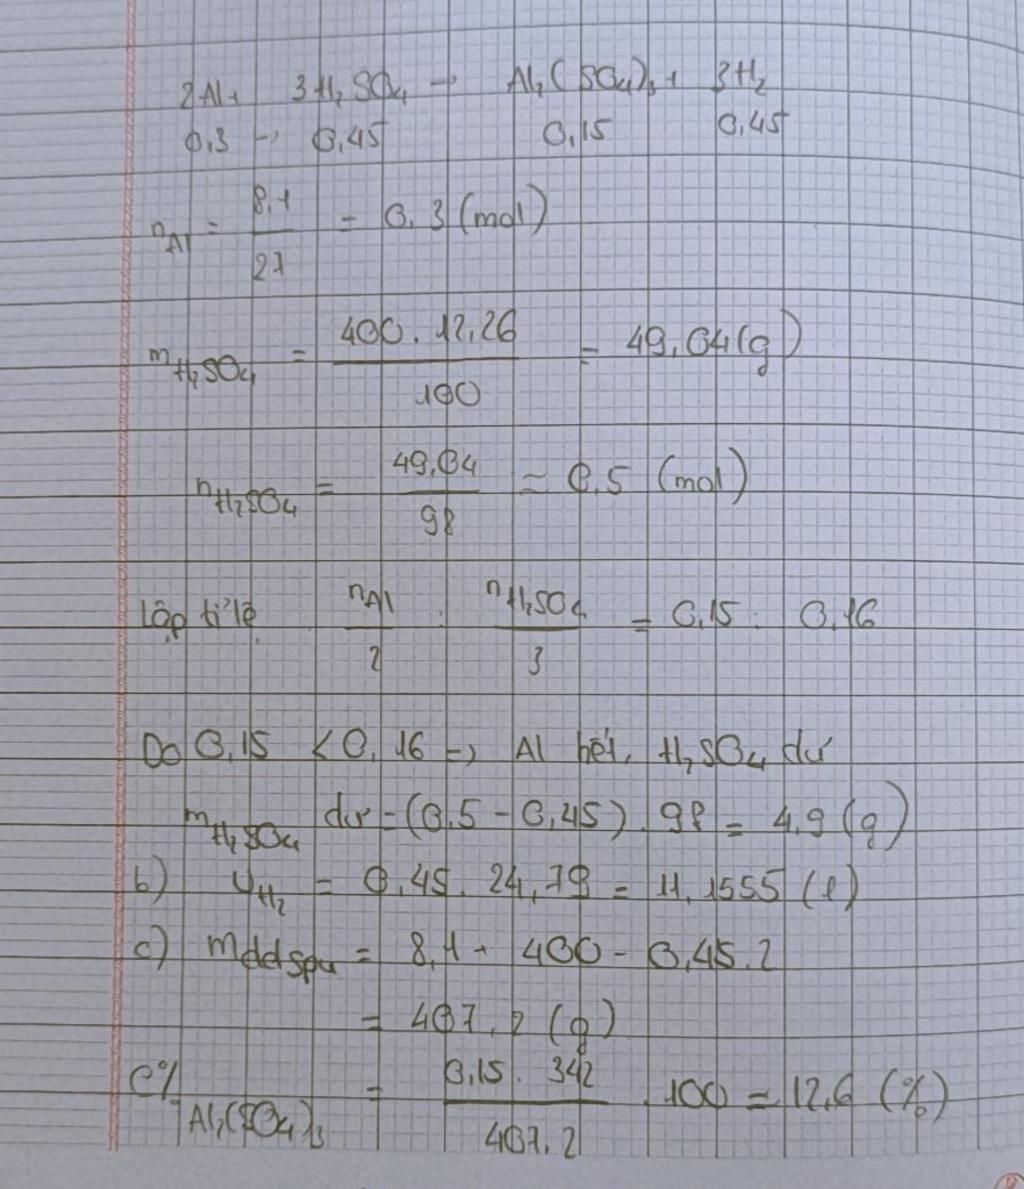 2Al + 3H₂SO₄ → Al₂(SO₄)₃ + 3H₂
0,3 → 0,45 0,15 0,45
n_Al = 8,1/27 = 0,3 (mol)
m_H₂SO₄ = 400.12,26/100 = 49,04 (g)
n_H₂SO₄ = 49,04/98 = 0,5 (mol)
Lập tỉ lệ n_Al/2 : n_H₂SO₄/3 = 0,15 : 0,16
Do 0,15 < 0,16 => Al hết, H₂SO₄ dư
m_H₂SO₄ dư = (0,5 - 0,45).98 = 4,9 (g)
b) V_H₂ = 0,45.24,79 = 11,1555 (l)
c) mddspư = 8,1 + 400 - 0,45.2
= 407,2 (g)
C%_Al₂(SO₄)₃ = 0,15.342/407,2 .100 = 12,6 (%)